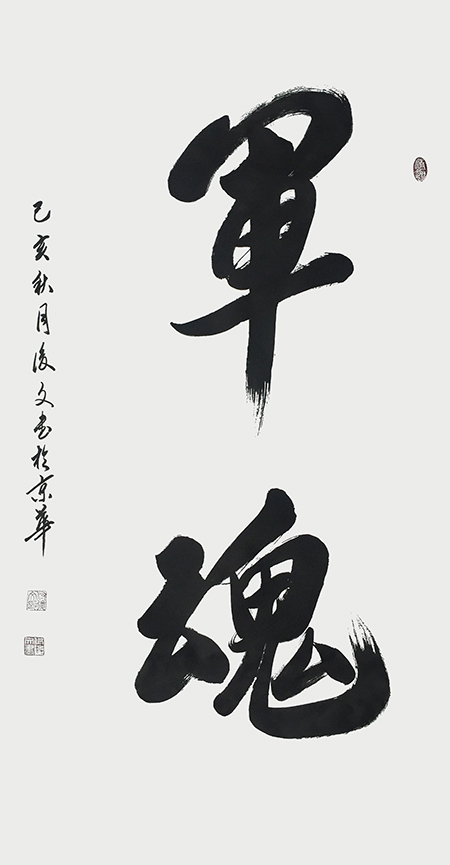 軍魂
己亥秋月俊文书於京華